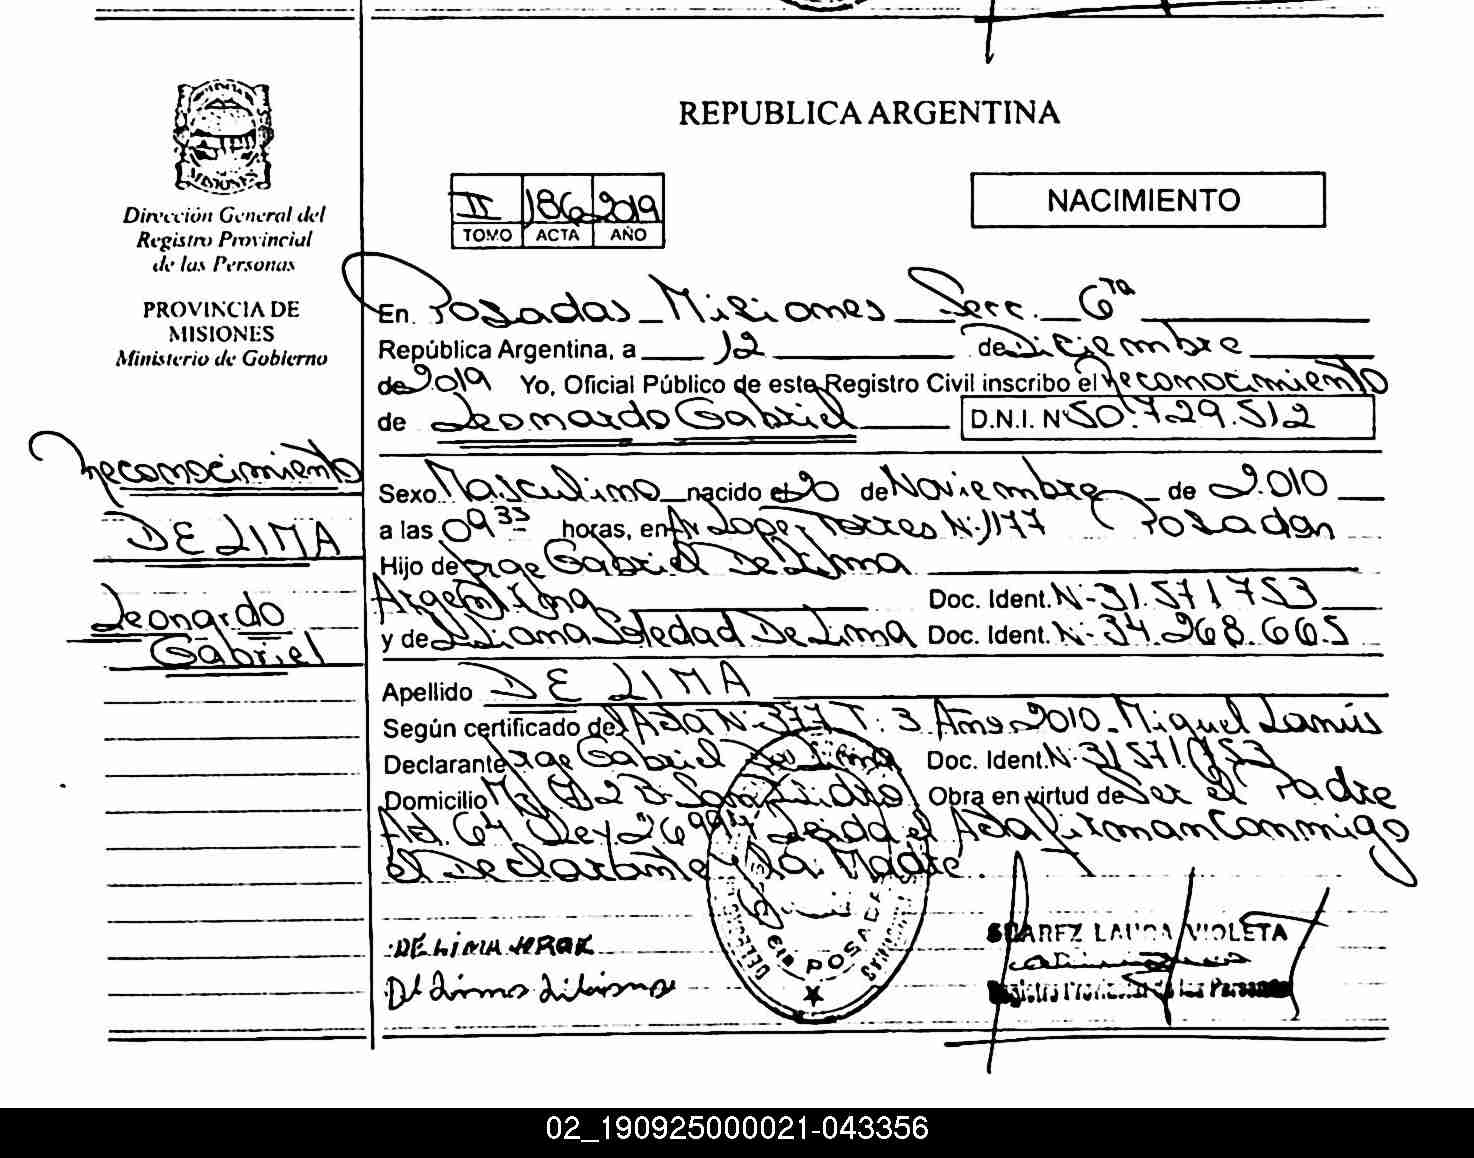 REPUBLICA ARGENTINA
MISIONES
Dirección General del
Registro Provincial
de las Personas
PROVINCIA DE
MISIONES
Ministerio de Gobierno
II 186 2019
TOMO ACTA AÑO
NACIMIENTO
En Posadas Misiones Secc. 6ta
República Argentina, a 12 de Diciembre
de 2019 Yo, Oficial Público de este Registro Civil inscribo el reconocimiento
de Leonardo Gabriel D.N.I. Nº 50.729.512
reconocimiento
DE LIMA
Leonardo
Gabriel
Sexo Masculino nacido el 20 de Noviembre de 2.010
a las 09 33 horas, en Av Lopez Torres N-1177 Posadas
Hijo de Jorge Gabriel De Lima
Argentina Doc. Ident. N-31.571753
y de Liliana Soledad De Lima Doc. Ident. N-34.268.665
Apellido DE LIMA
Según certificado de Acta N-377 T: 3 Año 2010 - Miguel Lanús
Declarante Jorge Gabriel De Lima Doc. Ident. N-31571.753
Domicilio San Isidro Obra en virtud de Ser el Padre
Art. 64 Ley 26994 Leida el Acta firman Conmigo
el Declarante La Madre.
DE LIMA JORGE
De Lima Liliana
POSADAS
SUAREZ LAURA VIOLETA
Registro Provincial de las Personas
02_190925000021-043356